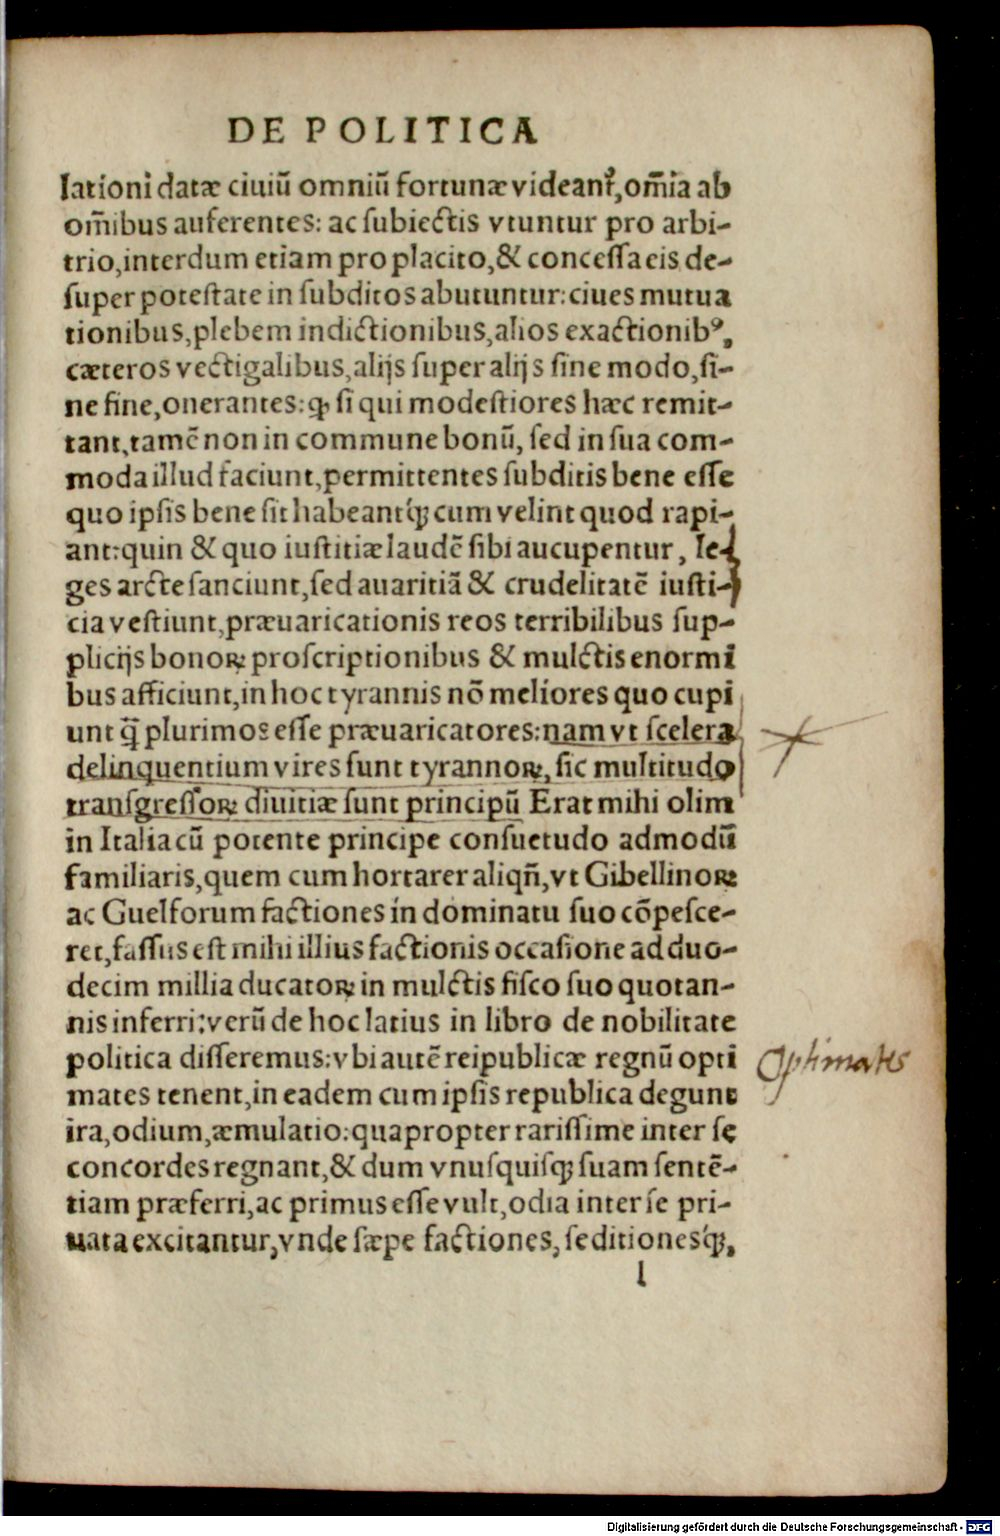 DE POLITICA
lationi datæ ciuiū omniū fortunæ videant᷑, om̄ia ab
om̄ibus auferentes: ac ſubiectis vtuntur pro arbi-
trio, interdum etiam pro placito, & conceſſa eis de-
ſuper poteſtate in ſubditos abutuntur: ciues mutua
tionibus, plebem indictionibus, alios exactionibꝰ,
cæteros vectigalibus, alijs ſuper alijs ſine modo, ſi-
ne fine, onerantes: ꝙ ſi qui modeſtiores hæc remit-
tant, tamē non in commune bonū, ſed in ſua com-
moda illud faciunt, permittentes ſubditis bene eſſe
quo ipſis bene ſit habeantq́ꝫ cum velint quod rapi-
ant: quin & quo iuſtitiæ laudē ſibi aucupentur, le-
ges arcte ſanciunt, ſed auaritiā & crudelitatē iuſti-
cia veſtiunt, præuaricationis reos terribilibus ſup-
plicijs bonoꝝ proſcriptionibus & mulctis enormi
bus afficiunt, in hoc tyrannis nō meliores quo cupi
unt q̄̃ plurimos eſſe præuaricatores: nam vt ſcelera
delinquentium vires ſunt tyrannoꝝ, ſic multitudo
tranſgreſſoꝝ diuitiæ ſunt principū Erat mihi olim
in Italia cū potente principe conſuetudo admodū
familiaris, quem cum hortarer aliqñ, vt Gibellinoꝝ
ac Guelforum factiones in dominatu ſuo cōpeſce-
ret, faſſus eſt mihi illius factionis occaſione ad duo-
decim millia ducatoꝝ in mulctis fiſco ſuo quotan-
nis inferri: verū de hoc latius in libro de nobilitate
politica diſſeremus: vbi autē reipublicæ regnū opti
mates tenent, in eadem cum ipſis republica degunt
ira, odium, æmulatio: quapropter rariſſime inter ſe
concordes regnant, & dum vnuſquiſqꝫ ſuam ſentē-
tiam præferri, ac primus eſſe vult, odia inter ſe pri-
uata excitantur, vnde ſæpe factiones, ſeditioneſq́ꝫ,
l
Optimates
Digitalisierung gefördert durch die Deutsche Forschungsgemeinschaft - DFG